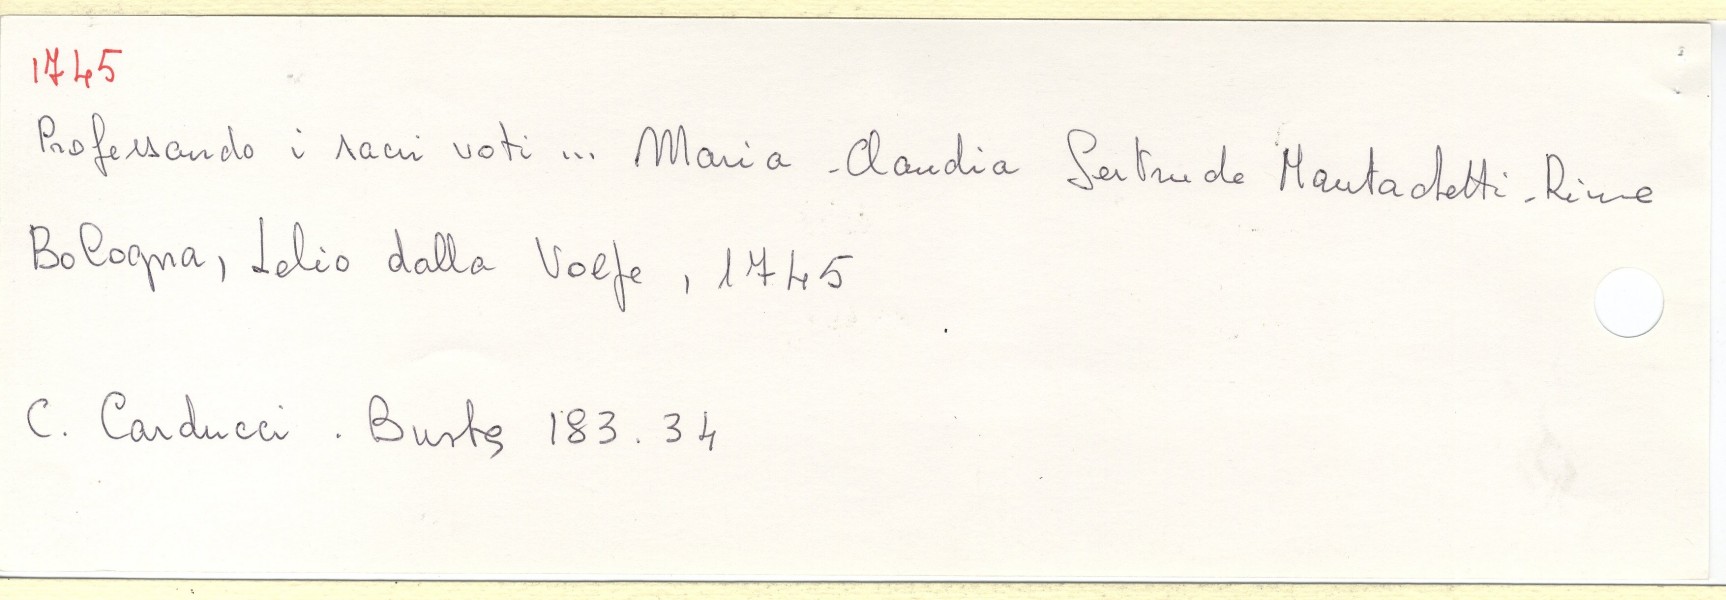 1745
Professando i sacri voti ... Maria Claudia Gertrude Mantachetti. Rime
Bologna, Lelio dalla Volpe, 1745
C. Carducci. Busta 183.34